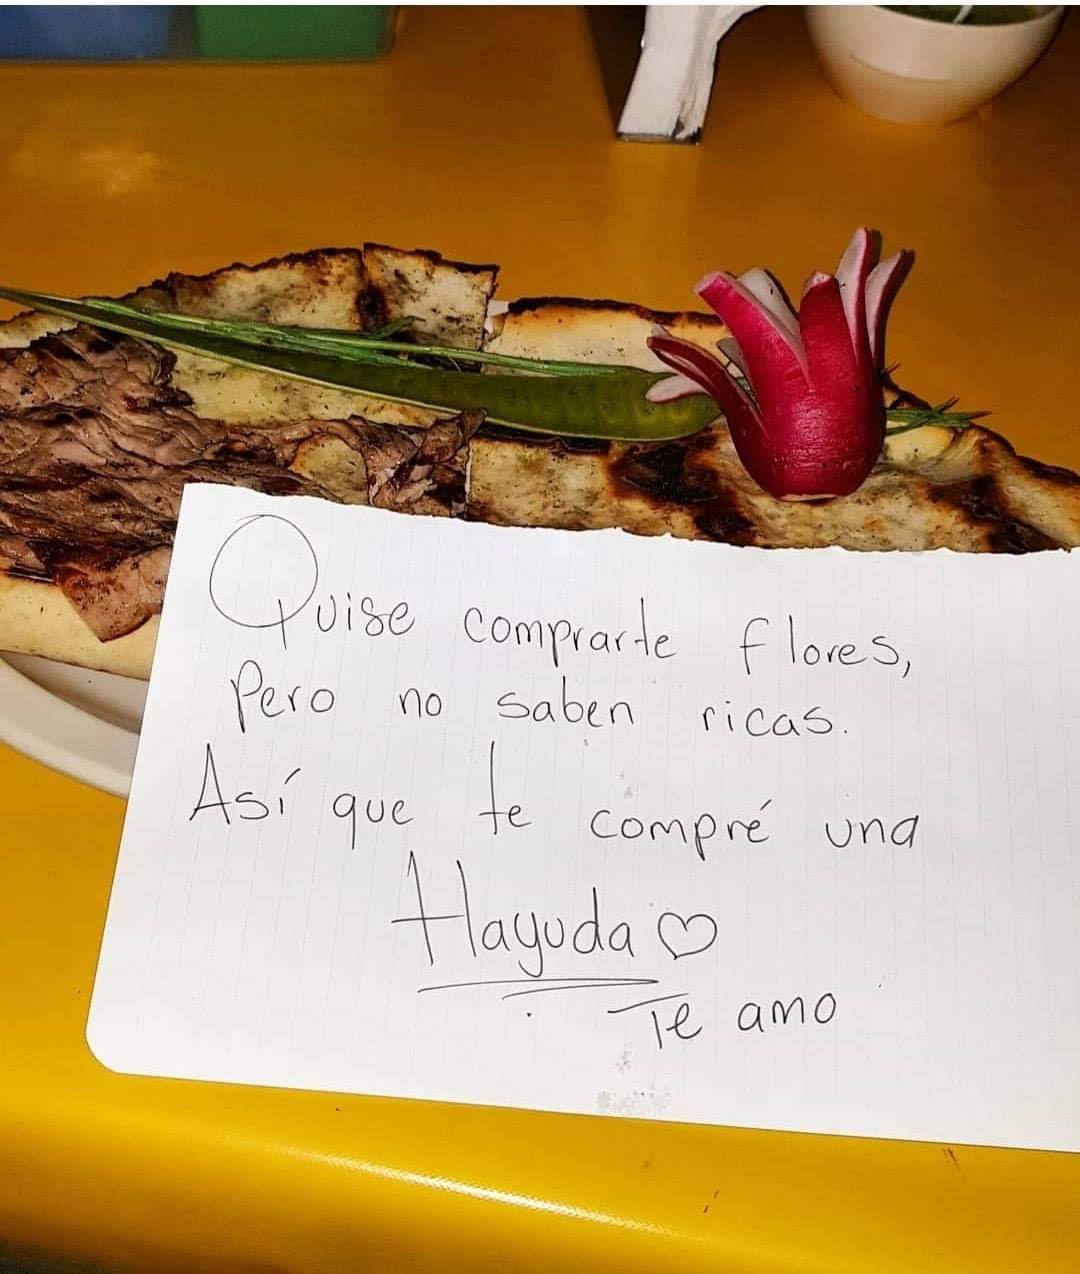 Quise comprarte flores,
Pero no saben ricas.
Así que te compré una
Tlayuda ♡
Te amo